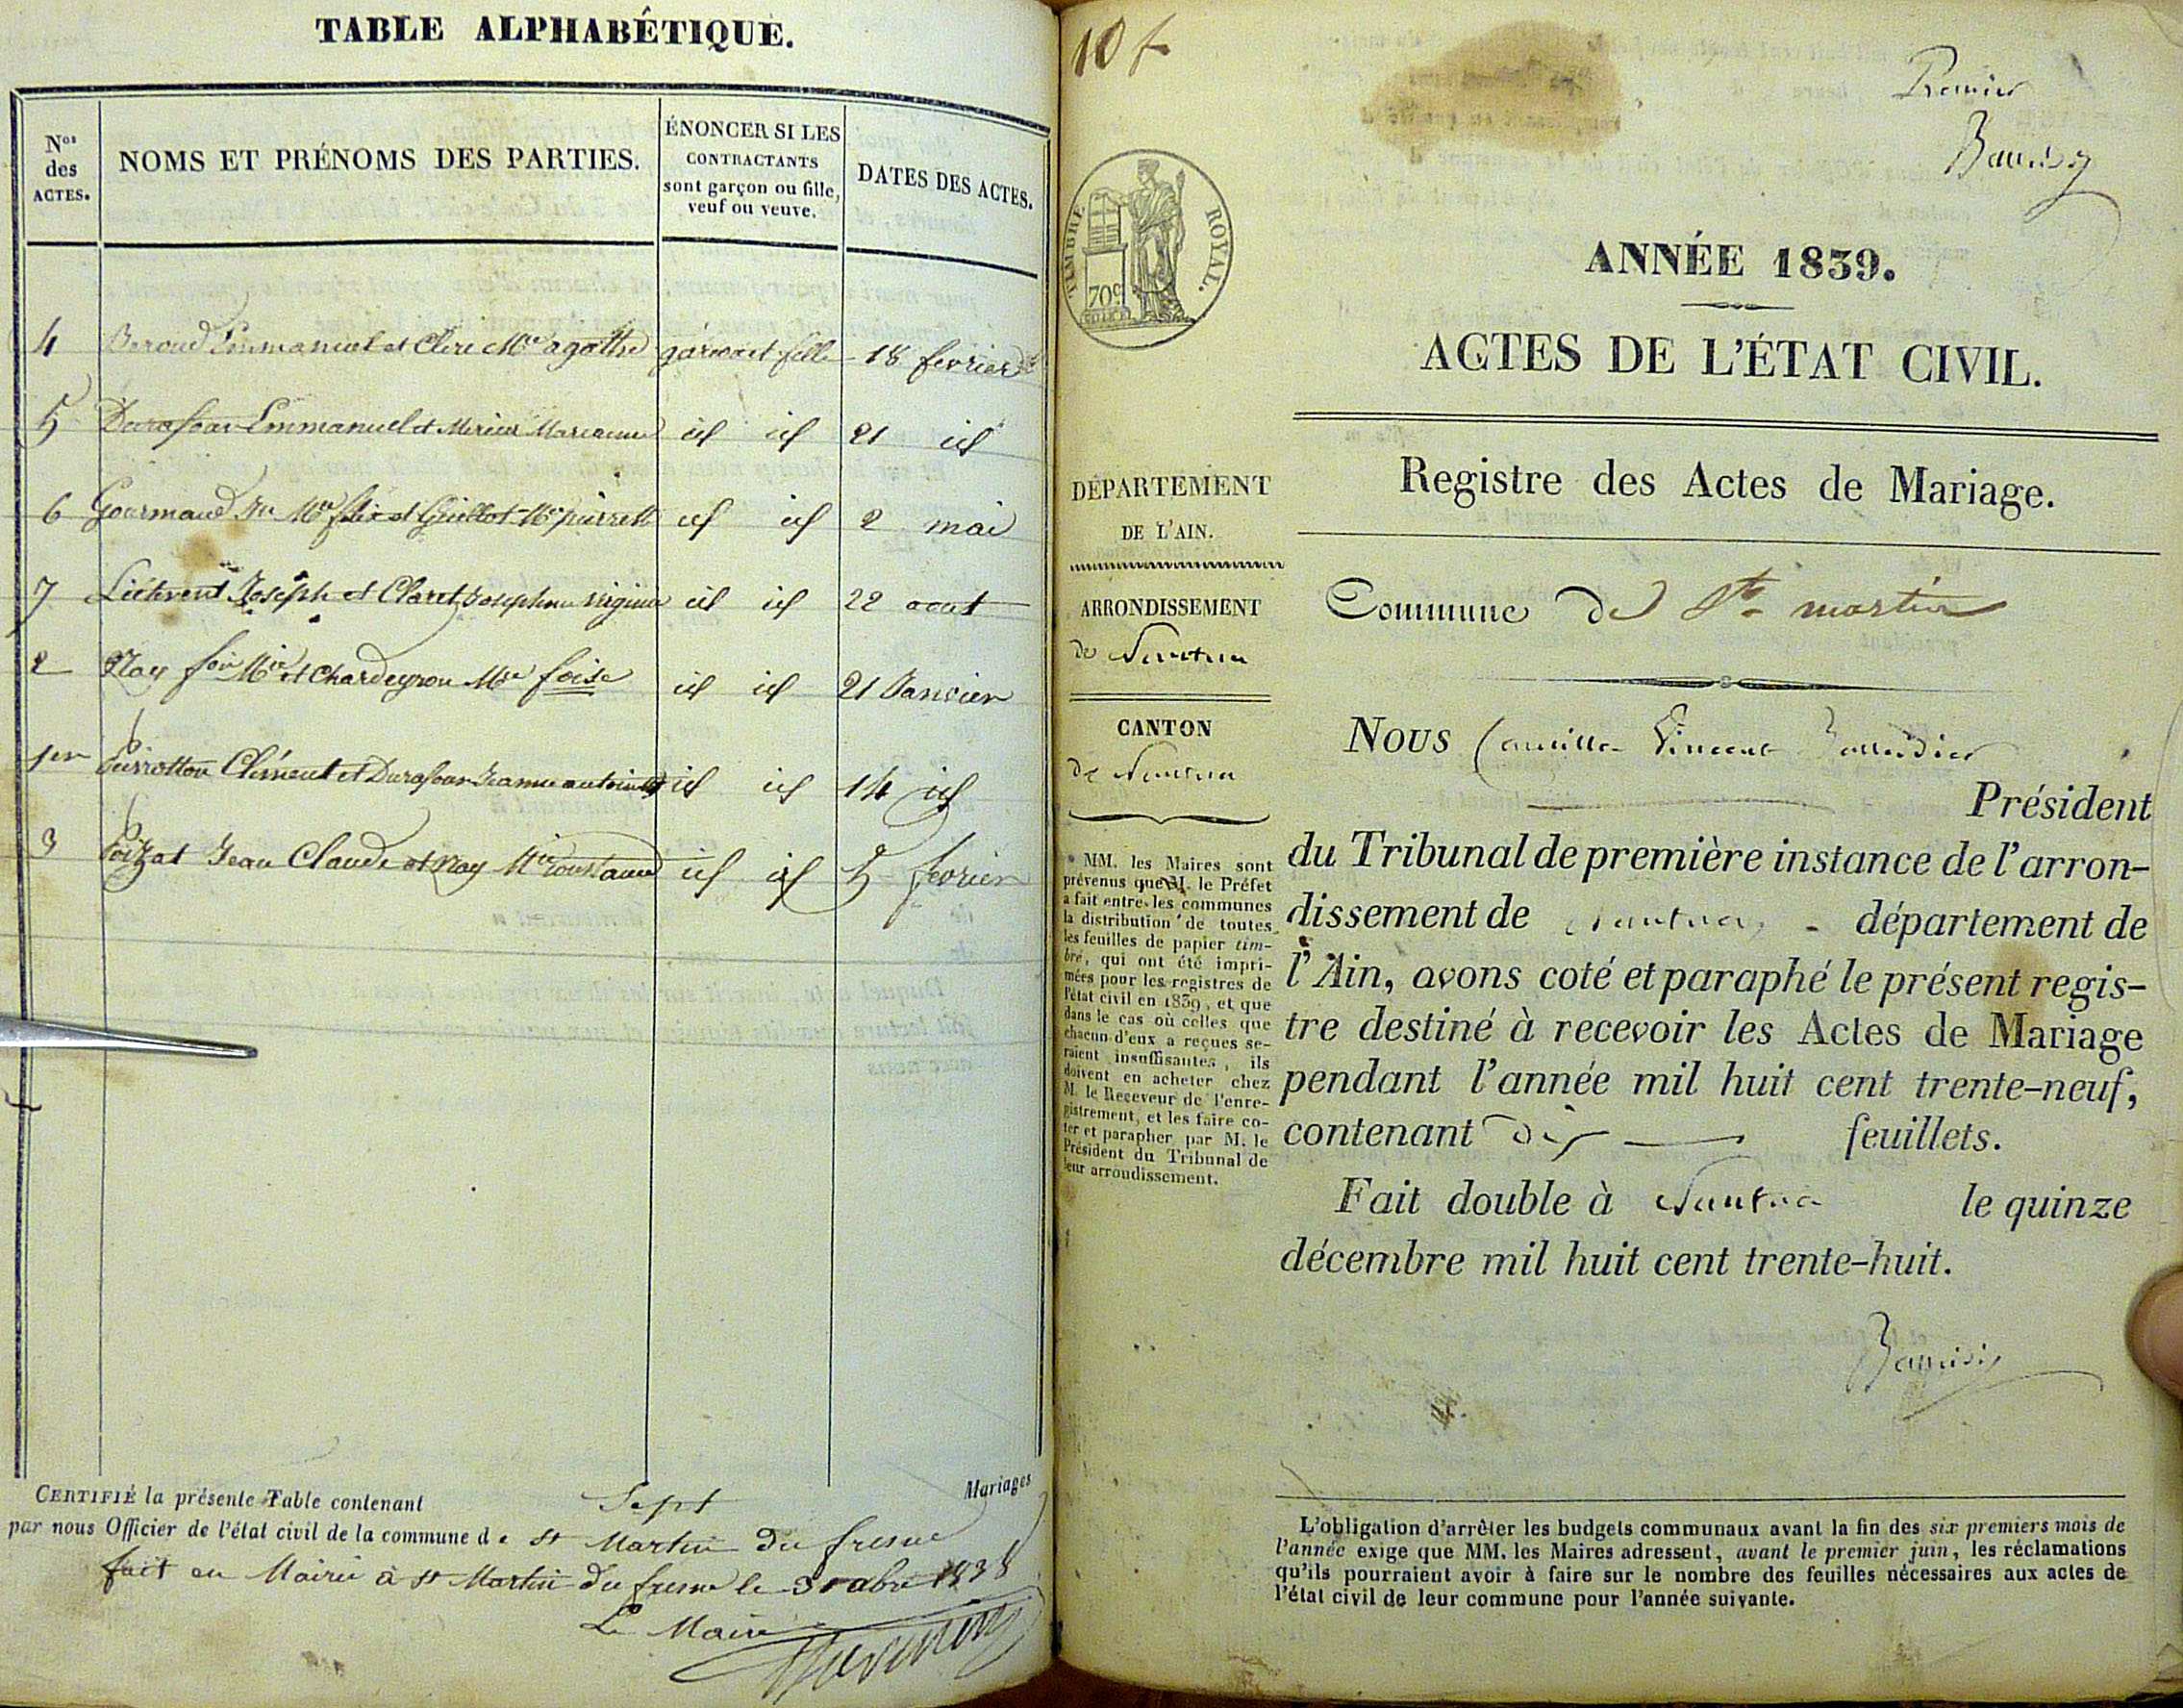 TABLE ALPHABÊTIQUE.
Nos des ACTES.
NOMS ET PRÉNOMS DES PARTIES.
ÉNONCER SI LES CONTRACTANTS sont garçon ou fille, veuf ou veuve.
DATES DES ACTES.
4 Beroud Emmanuel et Clerc Mie agathe garson et fille 18 fevrier
5 Durafour Emmanuel et Mercier Marianne id id 21 id
6 Gourmand Jn Mie felix et Guillot Mie pierrette id id 2 mai
7 Liétrent Joseph et Claret Josephine virginie id id 22 aout
2 Nay fois Mie et Chardeyron Mie foise id id 21 Janvier
1er Peirotton Clément et Durafour Jeanne antoinette id id 14 id
3 Poizat Jean Claude et Nay Mie id id 5 fevrier
CERTIFIÉ la présente Table contenant Sept Mariages
par nous Officier de l'état civil de la commune de St Martin du fresne
fait en Mairie à St Martin du fresne le 31 xbre 1838
Le Maire
10 f
Premier
TIMBRE ROYAL.
70c
ANNÉE 1839.
ACTES DE L'ÉTAT CIVIL.
Registre des Actes de Mariage.
DÉPARTEMENT
DE L'AIN.
ARRONDISSEMENT
de Nantua
CANTON
de Nantua
* MM. les Maires sont
prévenus que M. le Préfet
a fait entre les communes
la distribution de toutes
les feuilles de papier tim-
bré, qui ont été impri-
mées pour les registres de
l'état civil en 1839, et que
dans le cas où celles que
chacun d'eux a reçues se-
raient insuffisantes, ils
doivent en acheter chez
M. le Receveur de l'enre-
gistrement, et les faire co-
ter et parapher par M. le
Président du Tribunal de
leur arrondissement.
Commune de St martin
Nous Camille Vincent
Président
du Tribunal de première instance de l'arron-
dissement de Nantua, département de
l'Ain, avons coté et paraphé le présent regis-
tre destiné à recevoir les Actes de Mariage
pendant l'année mil huit cent trente-neuf,
contenant dix feuillets.
Fait double à Nantua le quinze
décembre mil huit cent trente-huit.
L'obligation d'arrêter les budgets communaux avant la fin des six premiers mois de
l'année exige que MM. les Maires adressent, avant le premier juin, les réclamations
qu'ils pourraient avoir à faire sur le nombre des feuilles nécessaires aux actes de
l'état civil de leur commune pour l'année suivante.